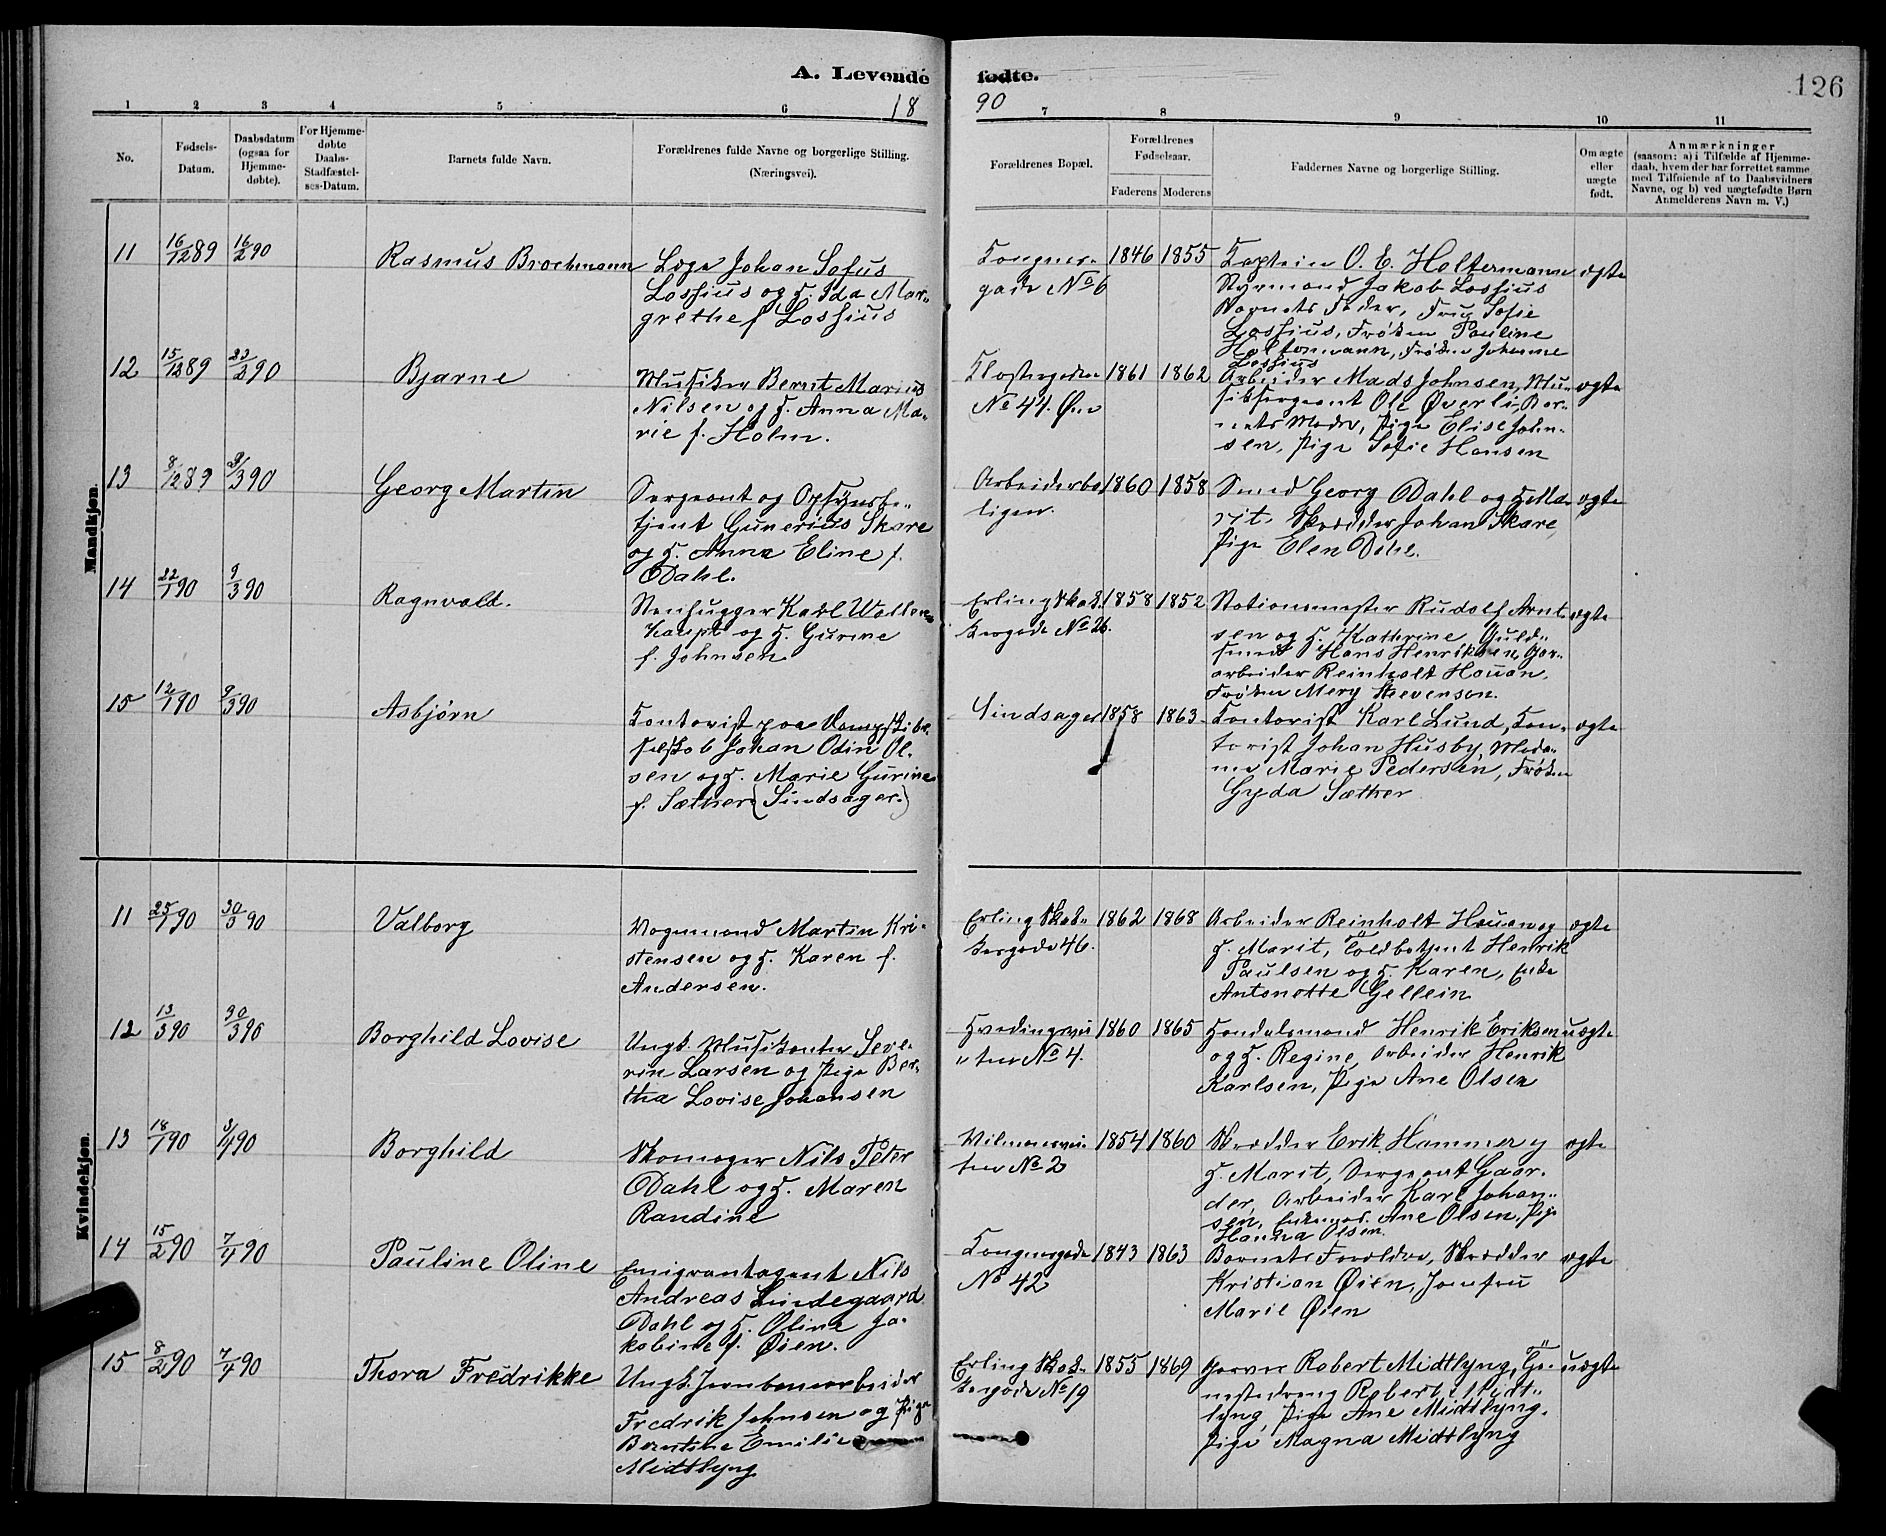 A. Levende fødte.
126
1890
1 2 3 4 5 6 7 8 9 10 11
No.
Fødsels-Datum.
Daabsdatum (ogsaa for Hjemme-døbte).
For Hjemme-døbte Daabs-Stadfæstel-ses-Datum.
Barnets fulde Navn.
Forældrenes fulde Navne og borgerlige Stilling. (Næringsvei).
Forældrenes Bopæl.
Forældrenes Fødselsaar.
Faderens Moderens
Faddernes Navne og borgerlige Stilling.
Om ægte eller uægte født.
Anmærkninger
(saasom: a) i Tilfælde af Hjemme-
daab, hvem der har forrettet samme
med Tilføiende af to Daabsvidners
Navne, og b) ved uægtefødte Børn
Anmelderens Navn m. V.)
Mandkjøn.
11 16/12 89 16/2 90 Rasmus Brochmann
Læge Johan Sofus
Lossius og H. Ida Mar-
grethe f Lossius
Kongens-
gade No 6
1846 1855
Kaptein O. E. Holtermann
Styrmand Jakob Lossius
Barnets Fader, Fru Sofie
Lossius, Frøken Pauline
Holtermann, Frøken Johanne
Lossius
ægte
12 15/12 89 23/2 90 Bjarne
Musiker Bernt Marius
Nilsen og H. Anna Ma-
rie f. Holm.
Klostergaden
No 44. Øen
1861 1862
Arbeider Mads Johnsen, Mu-
siksergeant Ole Øverli, Bar-
nets Moder, Pige Elise John-
sen, Pige Sofie Hansen
ægte
13 8/12 89 9/3 90 Georg Martin
Sergeant og Opsynsbe-
tjent Gunerius Skare
og H. Anna Eline f.
Dahl.
Arbeiderbo
ligen.
1860 1858
Smed Georg Dahl og H. Ma-
rit. Skrædder Johan Skare,
Pige Elen Dahl.
ægte
14 22/1 90 9/3 90 Ragnvald.
Stenhugger Karl Wallen
Kaupt og H. Gurine
f. Johnsen
Erling Skak-
kesgade No 26.
1858 1852
Stationsmester Rudolf Arnt
sen og H. Kathrine, Guld-
smed Hans Henriksen, Gar-
arbeider Reinholt Houan,
Frøken Mery Stevenson.
ægte
15 12/1 90 9/3 90 Asbjørn
Kontorist paa Dampskibs-
selskab Johan Odin Ol-
sen og H. Marie Gurine
f. Sæther (Sindsager.)
Sindsager
1858 1863
Kontorist Karl Lund, Kon-
torist Johan Husby, Mada-
me Marie Pedersen, Frøken
Gyda Sæther
ægte
Kvindekjøn.
11 25/1 90 30/3 90 Valborg
Vognmand Martin Kri-
stensen og H. Karen f.
Andersen.
Erling Skak-
kesgade 46.
1862 1868
Arbeider Reinholt Houan og
H. Marit, Toldbetjent Henrik
Paulsen og H. Karen, Enke
Antonette Gellein
ægte
12 13/3 90 30/3 90 Borghild Lovise
Ungk. Musikanter Seve-
rin Larsen og Pige Ber-
tha Lovise Johansen
Hvedingsvei
ten No 4.
1860 1865
Handelsmand Henrik Eriksen
og H. Regine, Arbeider Henrik
Karlsen, Pige Ane Olsen
uægte
13 18/1 90 3/4 90 Borghild
Skomager Nils Peter
Dahl og H. Maren
Randine
Vilmansvei
ten No 2
1854 1860
Skrædder Erik Hammer og
H. Marit, Sergeant Gaar-
der, Arbeider Karl Johan-
sen, Enkemad. Ane Olsen, Pige
Hanna Olsen.
ægte
14 15/2 90 7/4 90 Pauline Oline
Emigrantagent Nils
Andreas Lindegaard
Dahl og H. Oline Ja-
kobine f. Øien.
Kongensgade
No 42
1843 1863
Barnets Forældre, Skrædder
Kristian Øien, Jomfru
Marie Øien
ægte
15 8/2 90 7/4 90 Thora Fredrikke
Ungk. Jernbanearbeider
Fredrik Johnsen og Pige
Berntine Emilie
Midtlyng
Erling Skak-
kesgade No 19
1855 1869
Garver Robert Midtlyng,
Robert Midt-
lyng, Pige Ane Midtlyng.
Pige Magna Midtlyng
uægte